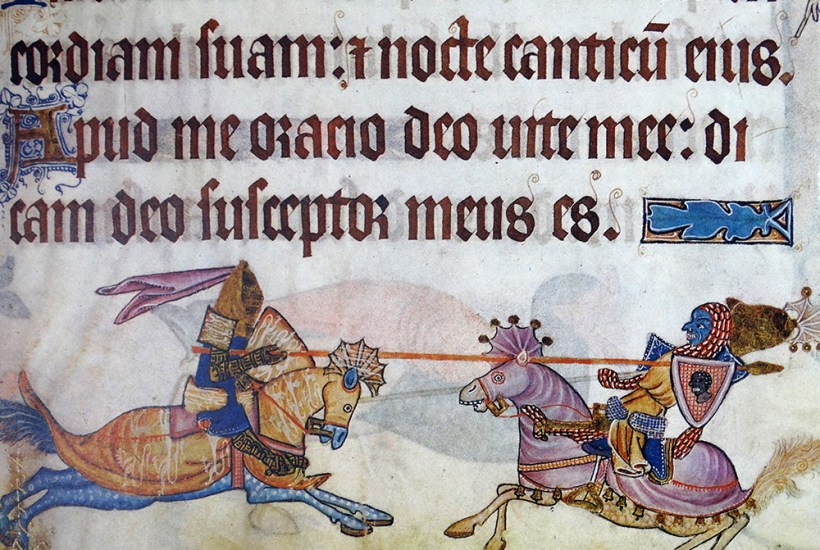 cordiam suam: ⁊ nocte canticū eius.
Apud me oracio deo uite mee: di
cam deo susceptor meus es.